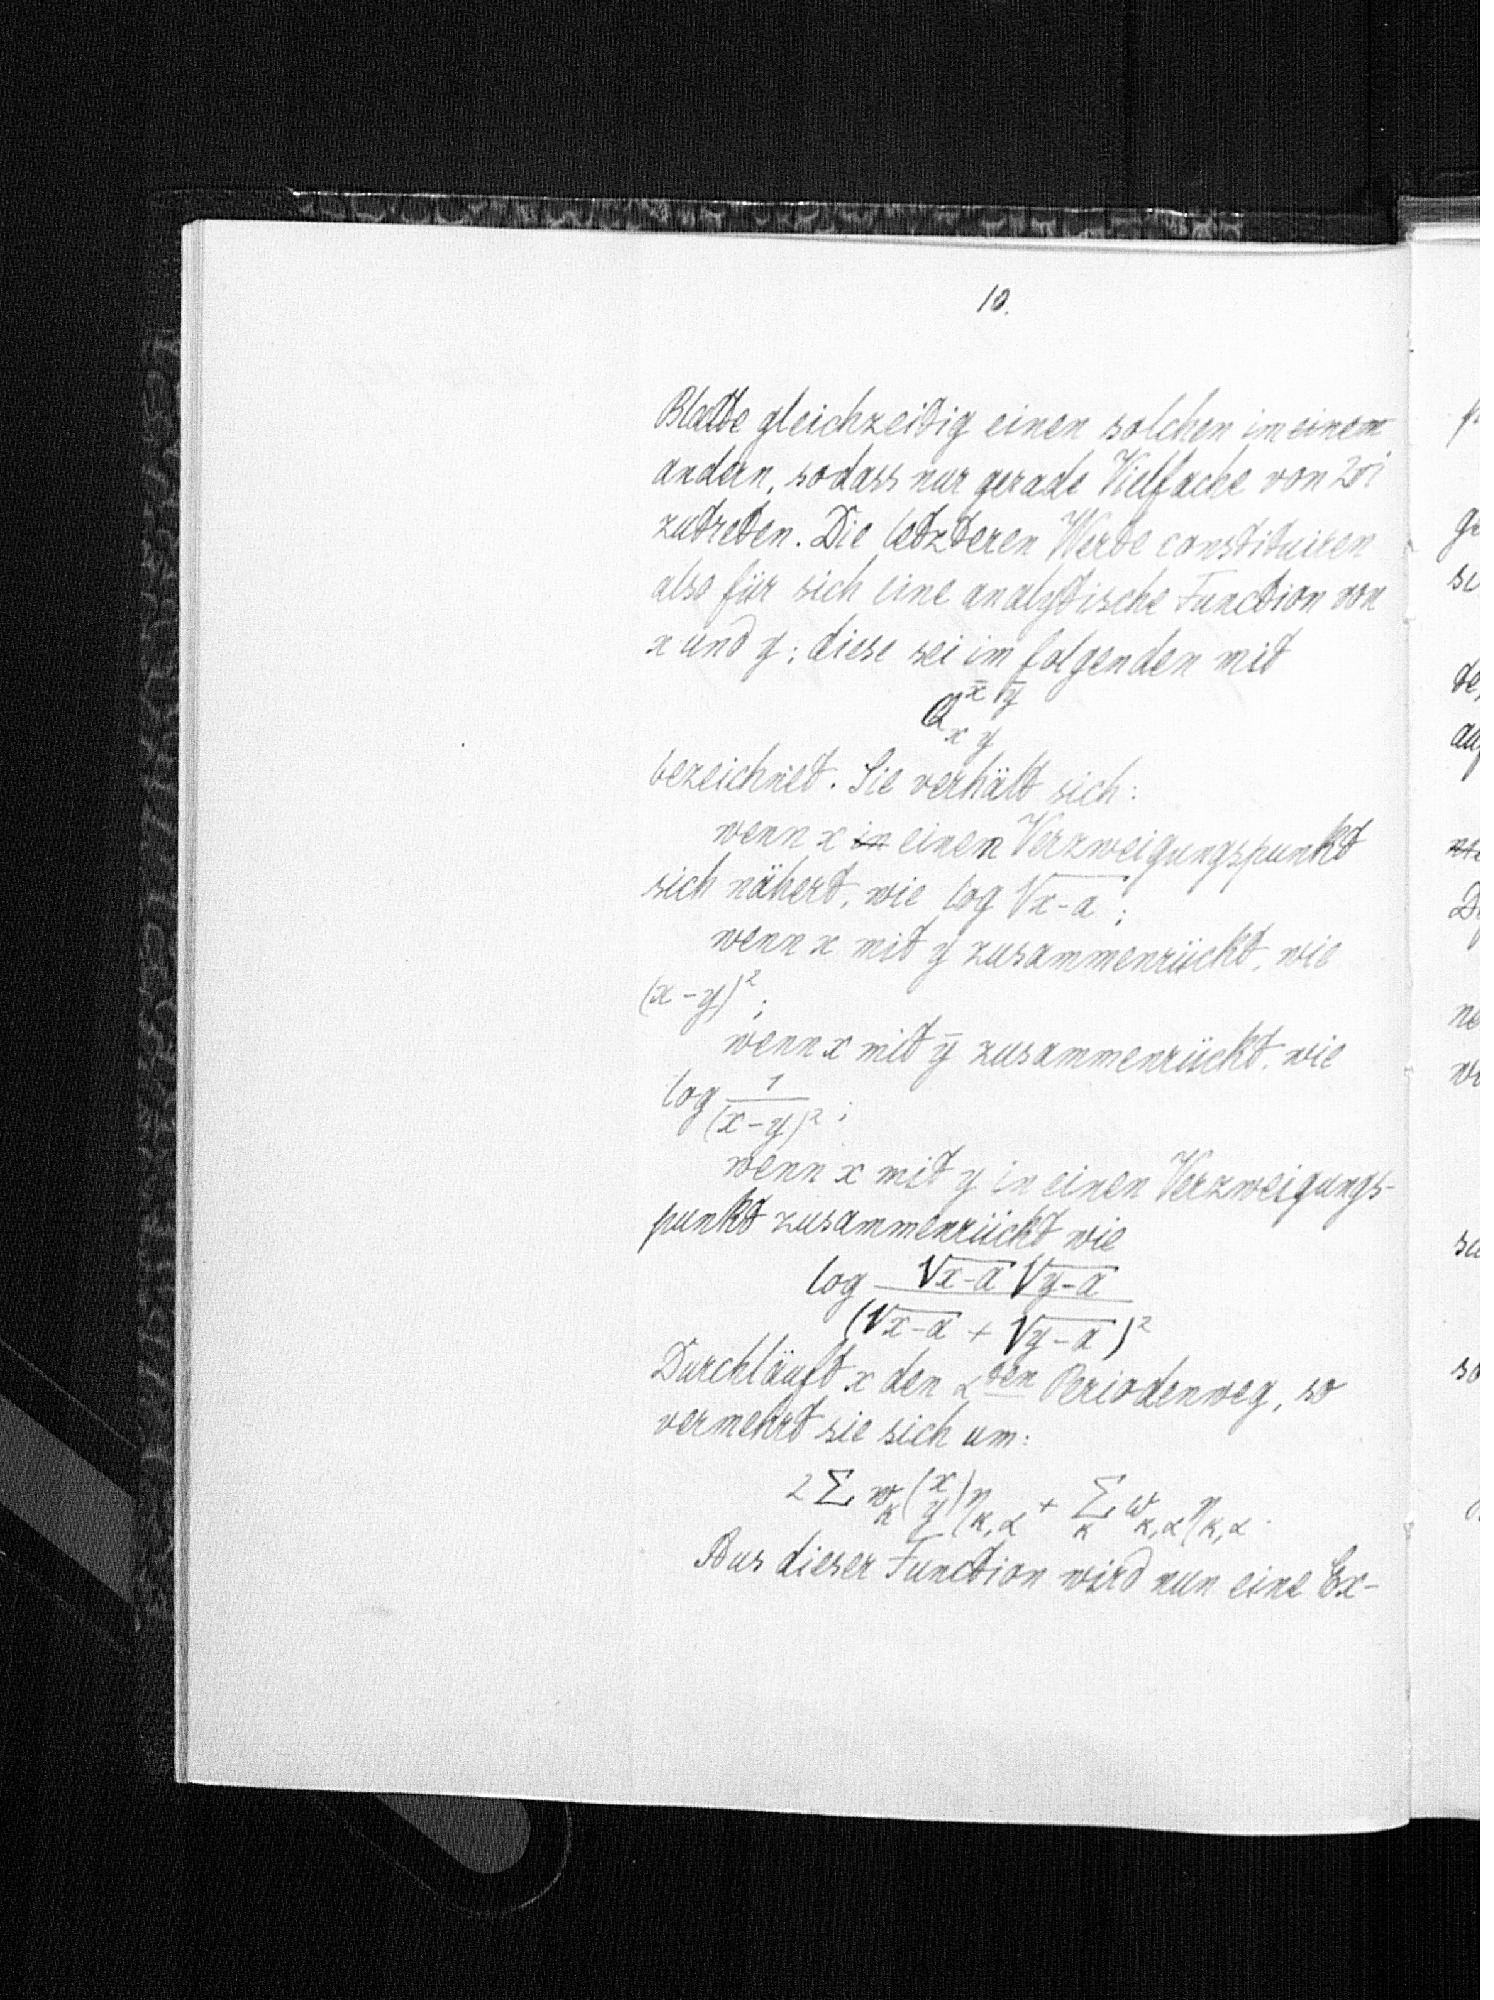 10.
Blatte gleichzeitig einen solchen in einem
andern, sodass nur gerade Vielfache von 2πi
zutreten. Die letzteren Werte constituiren
also für sich eine analytische Function von
x und y; diese sei im folgenden mit
Q^{x̄ ȳ}_{x y}
bezeichnet. Sie verhält sich:
wenn x in einen Verzweigungspunkt
sich nähert, wie log √(x-a);
wenn x mit y zusammenrückt, wie
(x-y)²;
wenn x mit ȳ zusammenrückt, wie
log 1/(x-y)²;
wenn x mit y in einen Verzweigungs-
punkt zusammenrückt wie
log √(x-a) √(y-a) / (√(x-a) + √(y-a))²
Durchläuft x den α ten Periodenweg, so
vermehrt sie sich um:
2 Σ w_κ(x y) η_{κ,α} + Σ_κ ω_{κ,α} η_{κ,α}.
Aus dieser Function wird nun eine Ex-